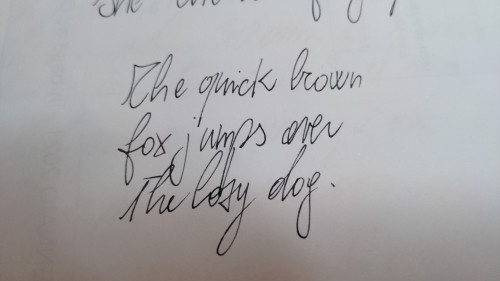 She
The quick brown
fox jumps over
the lazy dog.